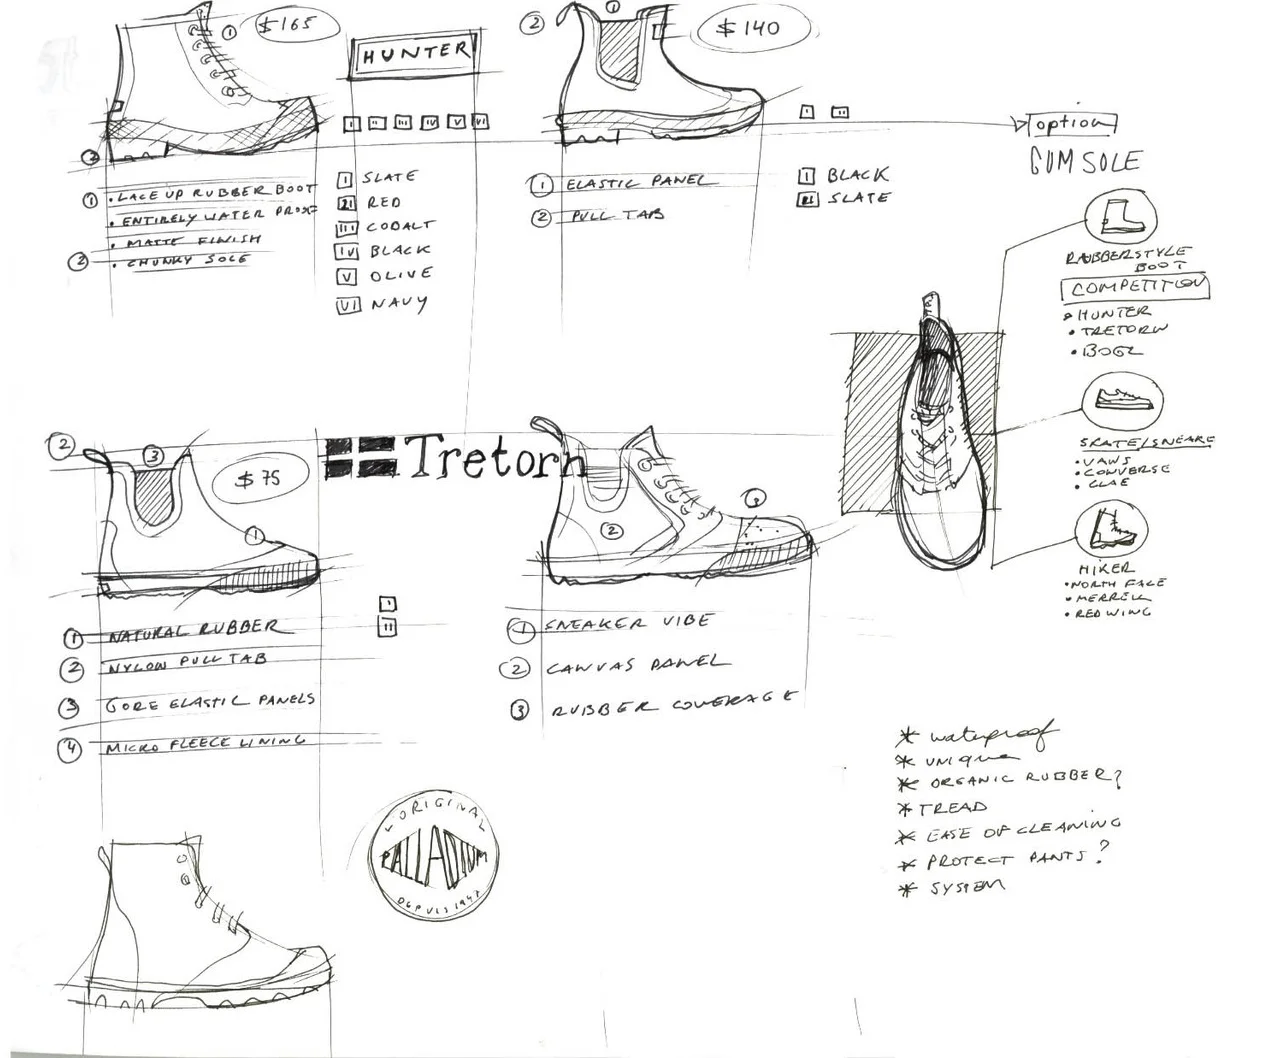 ① $165
HUNTER
② ① $140
I II III IV V VI
I II
option
GUM SOLE
②
① • LACE UP RUBBER BOOT
• ENTIRELY WATER PROOF
• MATTE FINISH
② • CHUNKY SOLE
I SLATE
II RED
III COBALT
IV BLACK
V OLIVE
VI NAVY
① ELASTIC PANEL
② PULL TAB
I BLACK
II SLATE
RUBBERSTYLE
BOOT
COMPETITION
• HUNTER
• TRETORN
• BOGZ
SKATE/SNEAKE
• VANS
• CONVERSE
• CLAE
HIKER
• NORTH FACE
• MERRELL
• RED WING
② ③ $75
①
Tretorn
② ③
I
II
① NATURAL RUBBER
② NYLON PULL TAB
③ GORE ELASTIC PANELS
④ MICRO FLEECE LINING
① SNEAKER VIBE
② CANVAS PANEL
③ RUBBER COVERAGE
* waterproof
* UNIQUE
* ORGANIC RUBBER?
* TREAD
* EASE OF CLEANING
* PROTECT PANTS?
* SYSTEM
L'ORIGINAL
PALLADIUM
DEPUIS 1947